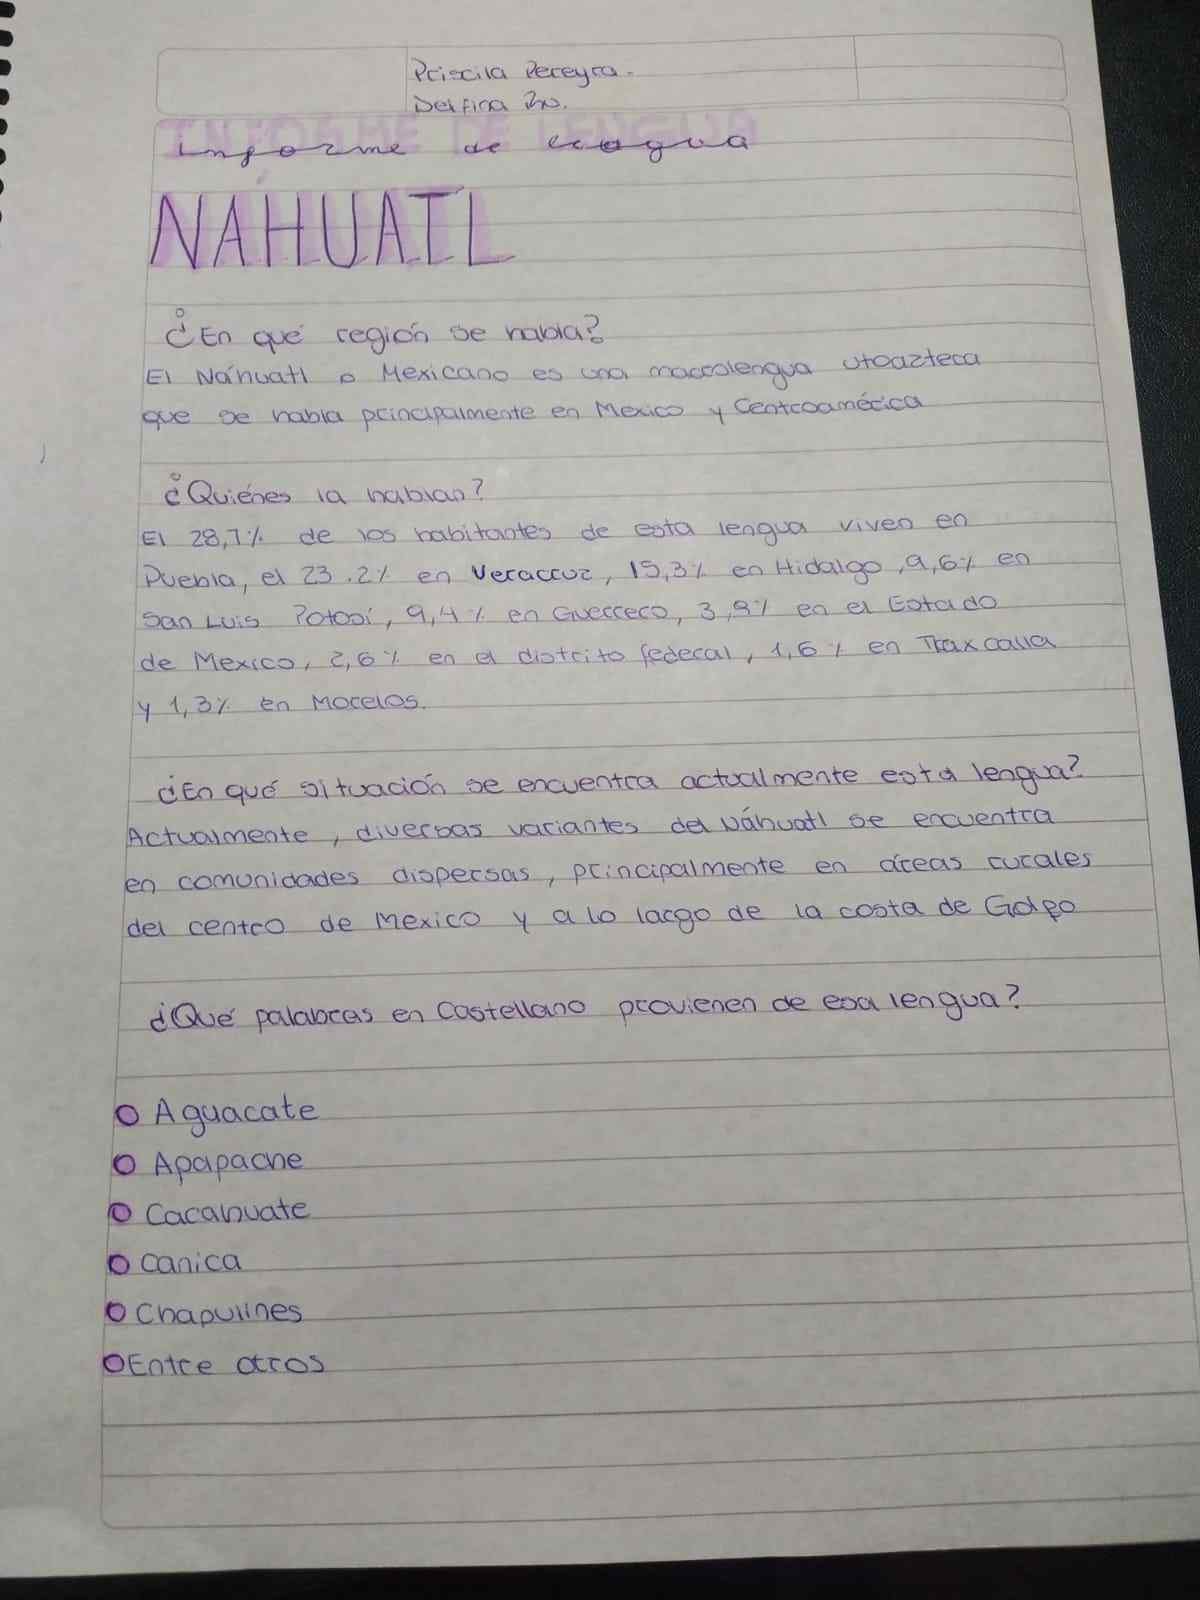 Priscila Pereyra.
Delfina Zw.
Informe de lengua
NÁHUATL
¿En qué región se habla?
El Náhuatl o Mexicano es una macrolengua utoazteca
que se habla principalmente en Mexico y Centroamérica
¿Quiénes la hablan?
El 28,7% de los habitantes de esta lengua viven en
Puebla, el 23.2% en Veracruz, 15,3% en Hidalgo, 9,6% en
San Luis Potosí, 9,4% en Guerrero, 3,9% en el Estado
de Mexico, 2,6% en el distrito federal, 1,6% en Tlaxcalla
y 1,3% en Morelos.
¿En qué situación se encuentra actualmente esta lengua?
Actualmente, diversas variantes del Náhuatl se encuentra
en comunidades dispersas, principalmente en áreas rurales
del centro de Mexico y a lo largo de la costa de Golfo
¿Qué palabras en Castellano provienen de esa lengua?
Aguacate
Apapache
Cacahuate
Canica
Chapulines
Entre otros